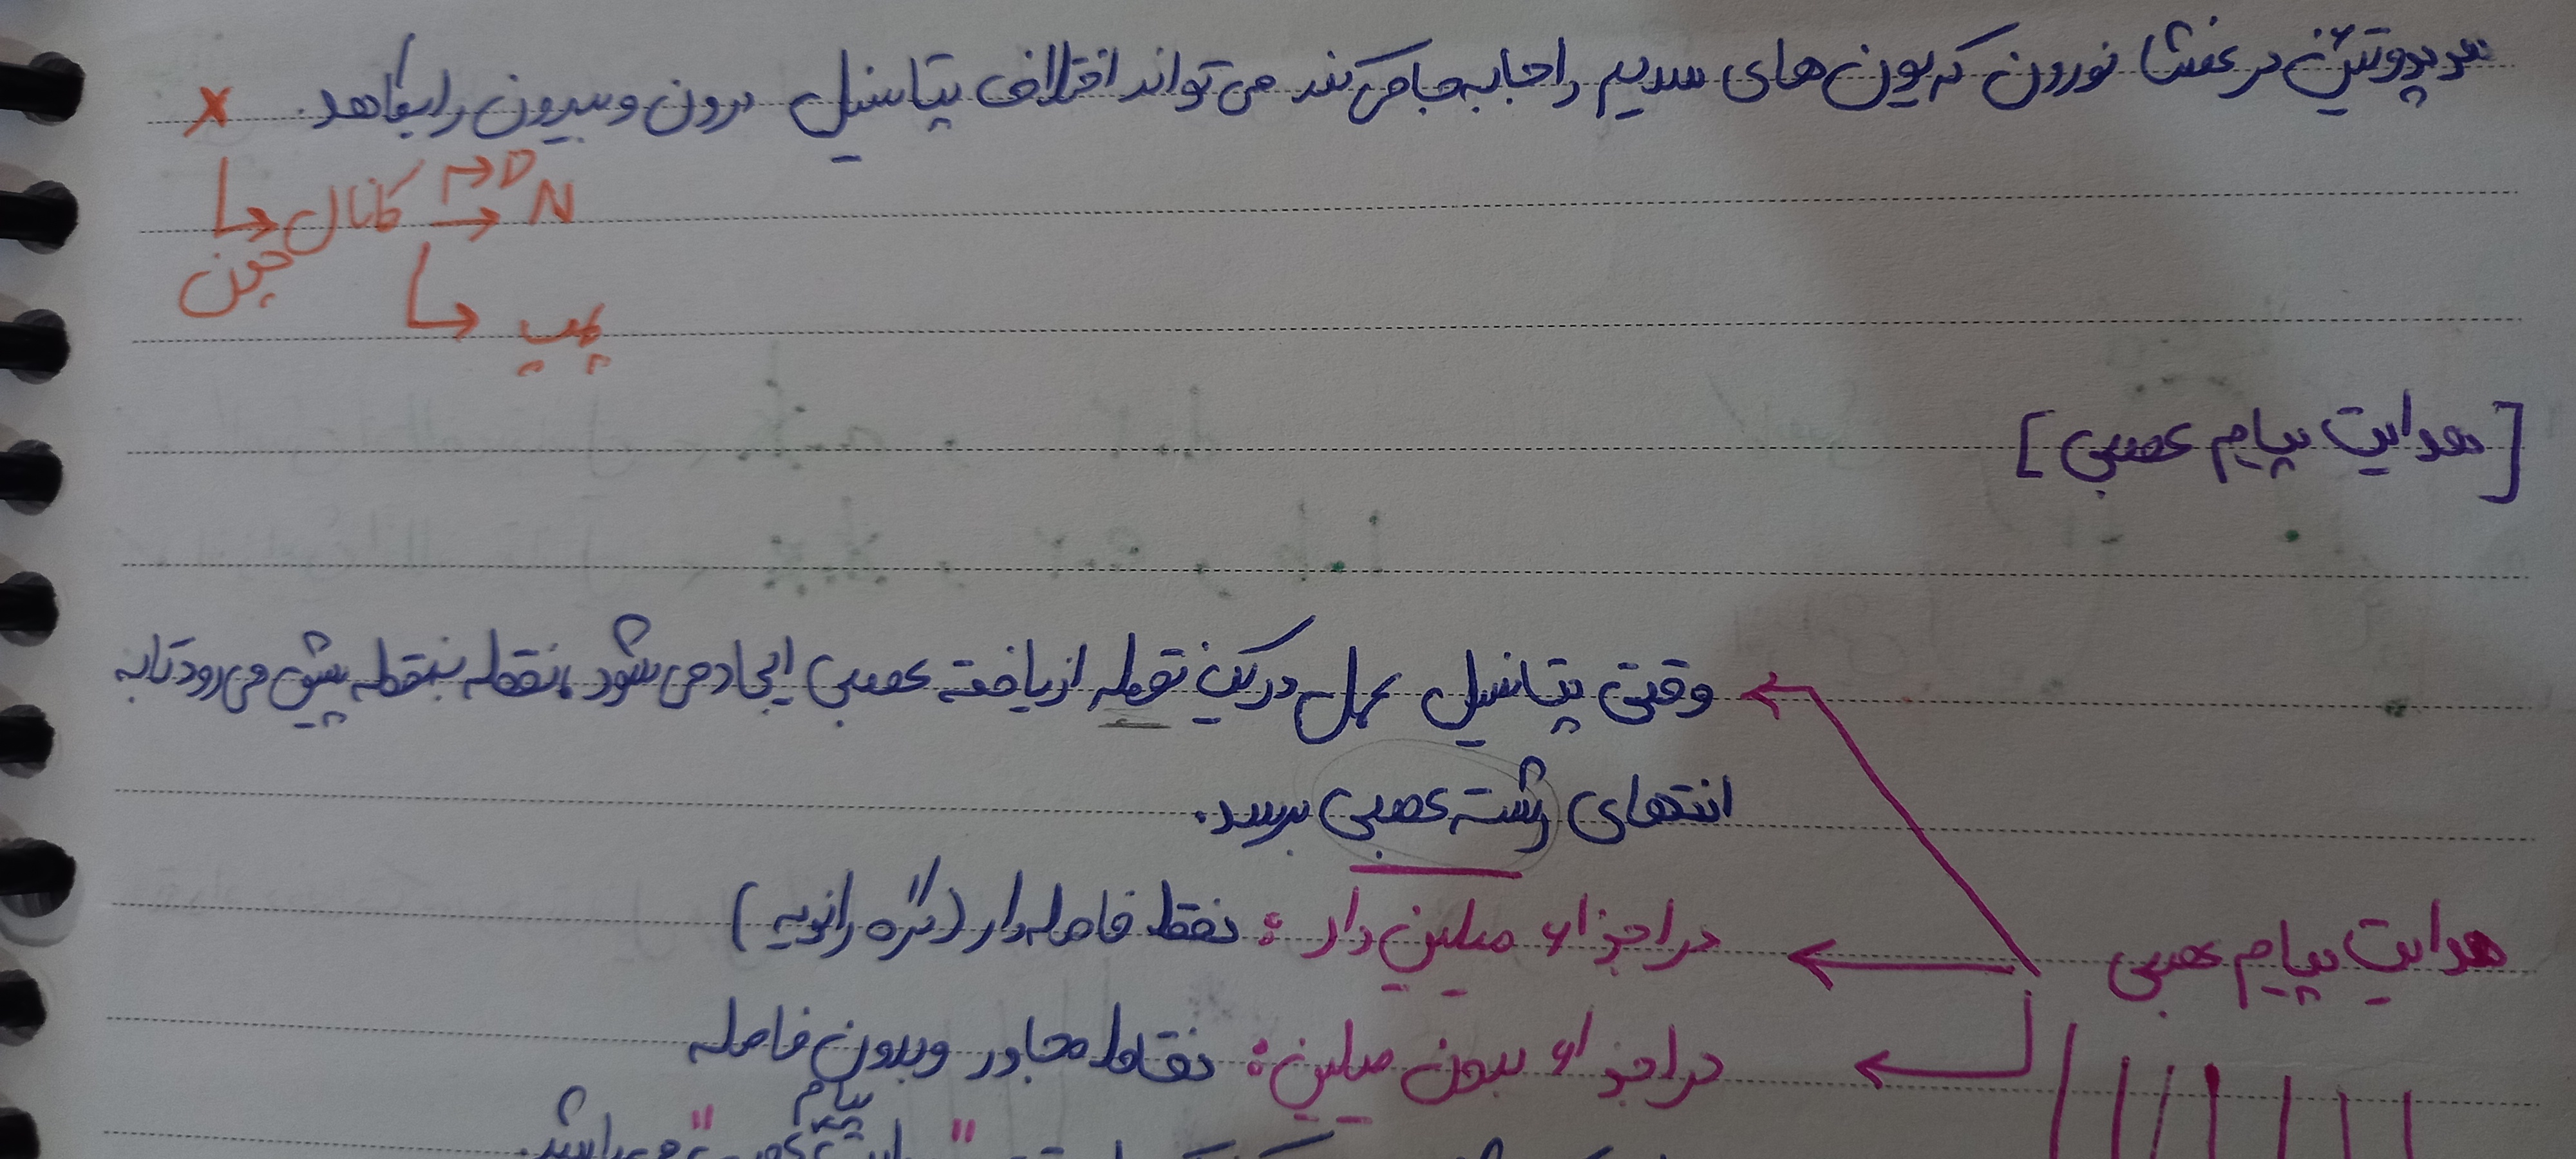 هر پروتئین در غشا نورون که یون‌های سدیم را جابه‌جا می‌کند می‌تواند اختلاف پتانسیل درون و بیرون را بکاهد. ×
چون کانال → N
پمپ
[هدایت پیام عصبی]
وقتی پتانسیل عمل در یک نقطه از یاخته عصبی ایجاد می‌شود، نقطه به نقطه پیش می‌رود تا به
انتهای رشته عصبی برسد.
هدایت پیام عصبی
در اجزاء میلین‌دار : نقاط فاصله‌دار (گره رانویه)
در اجزاء بدون میلین : نقاط مجاور و بدون فاصله
پیام